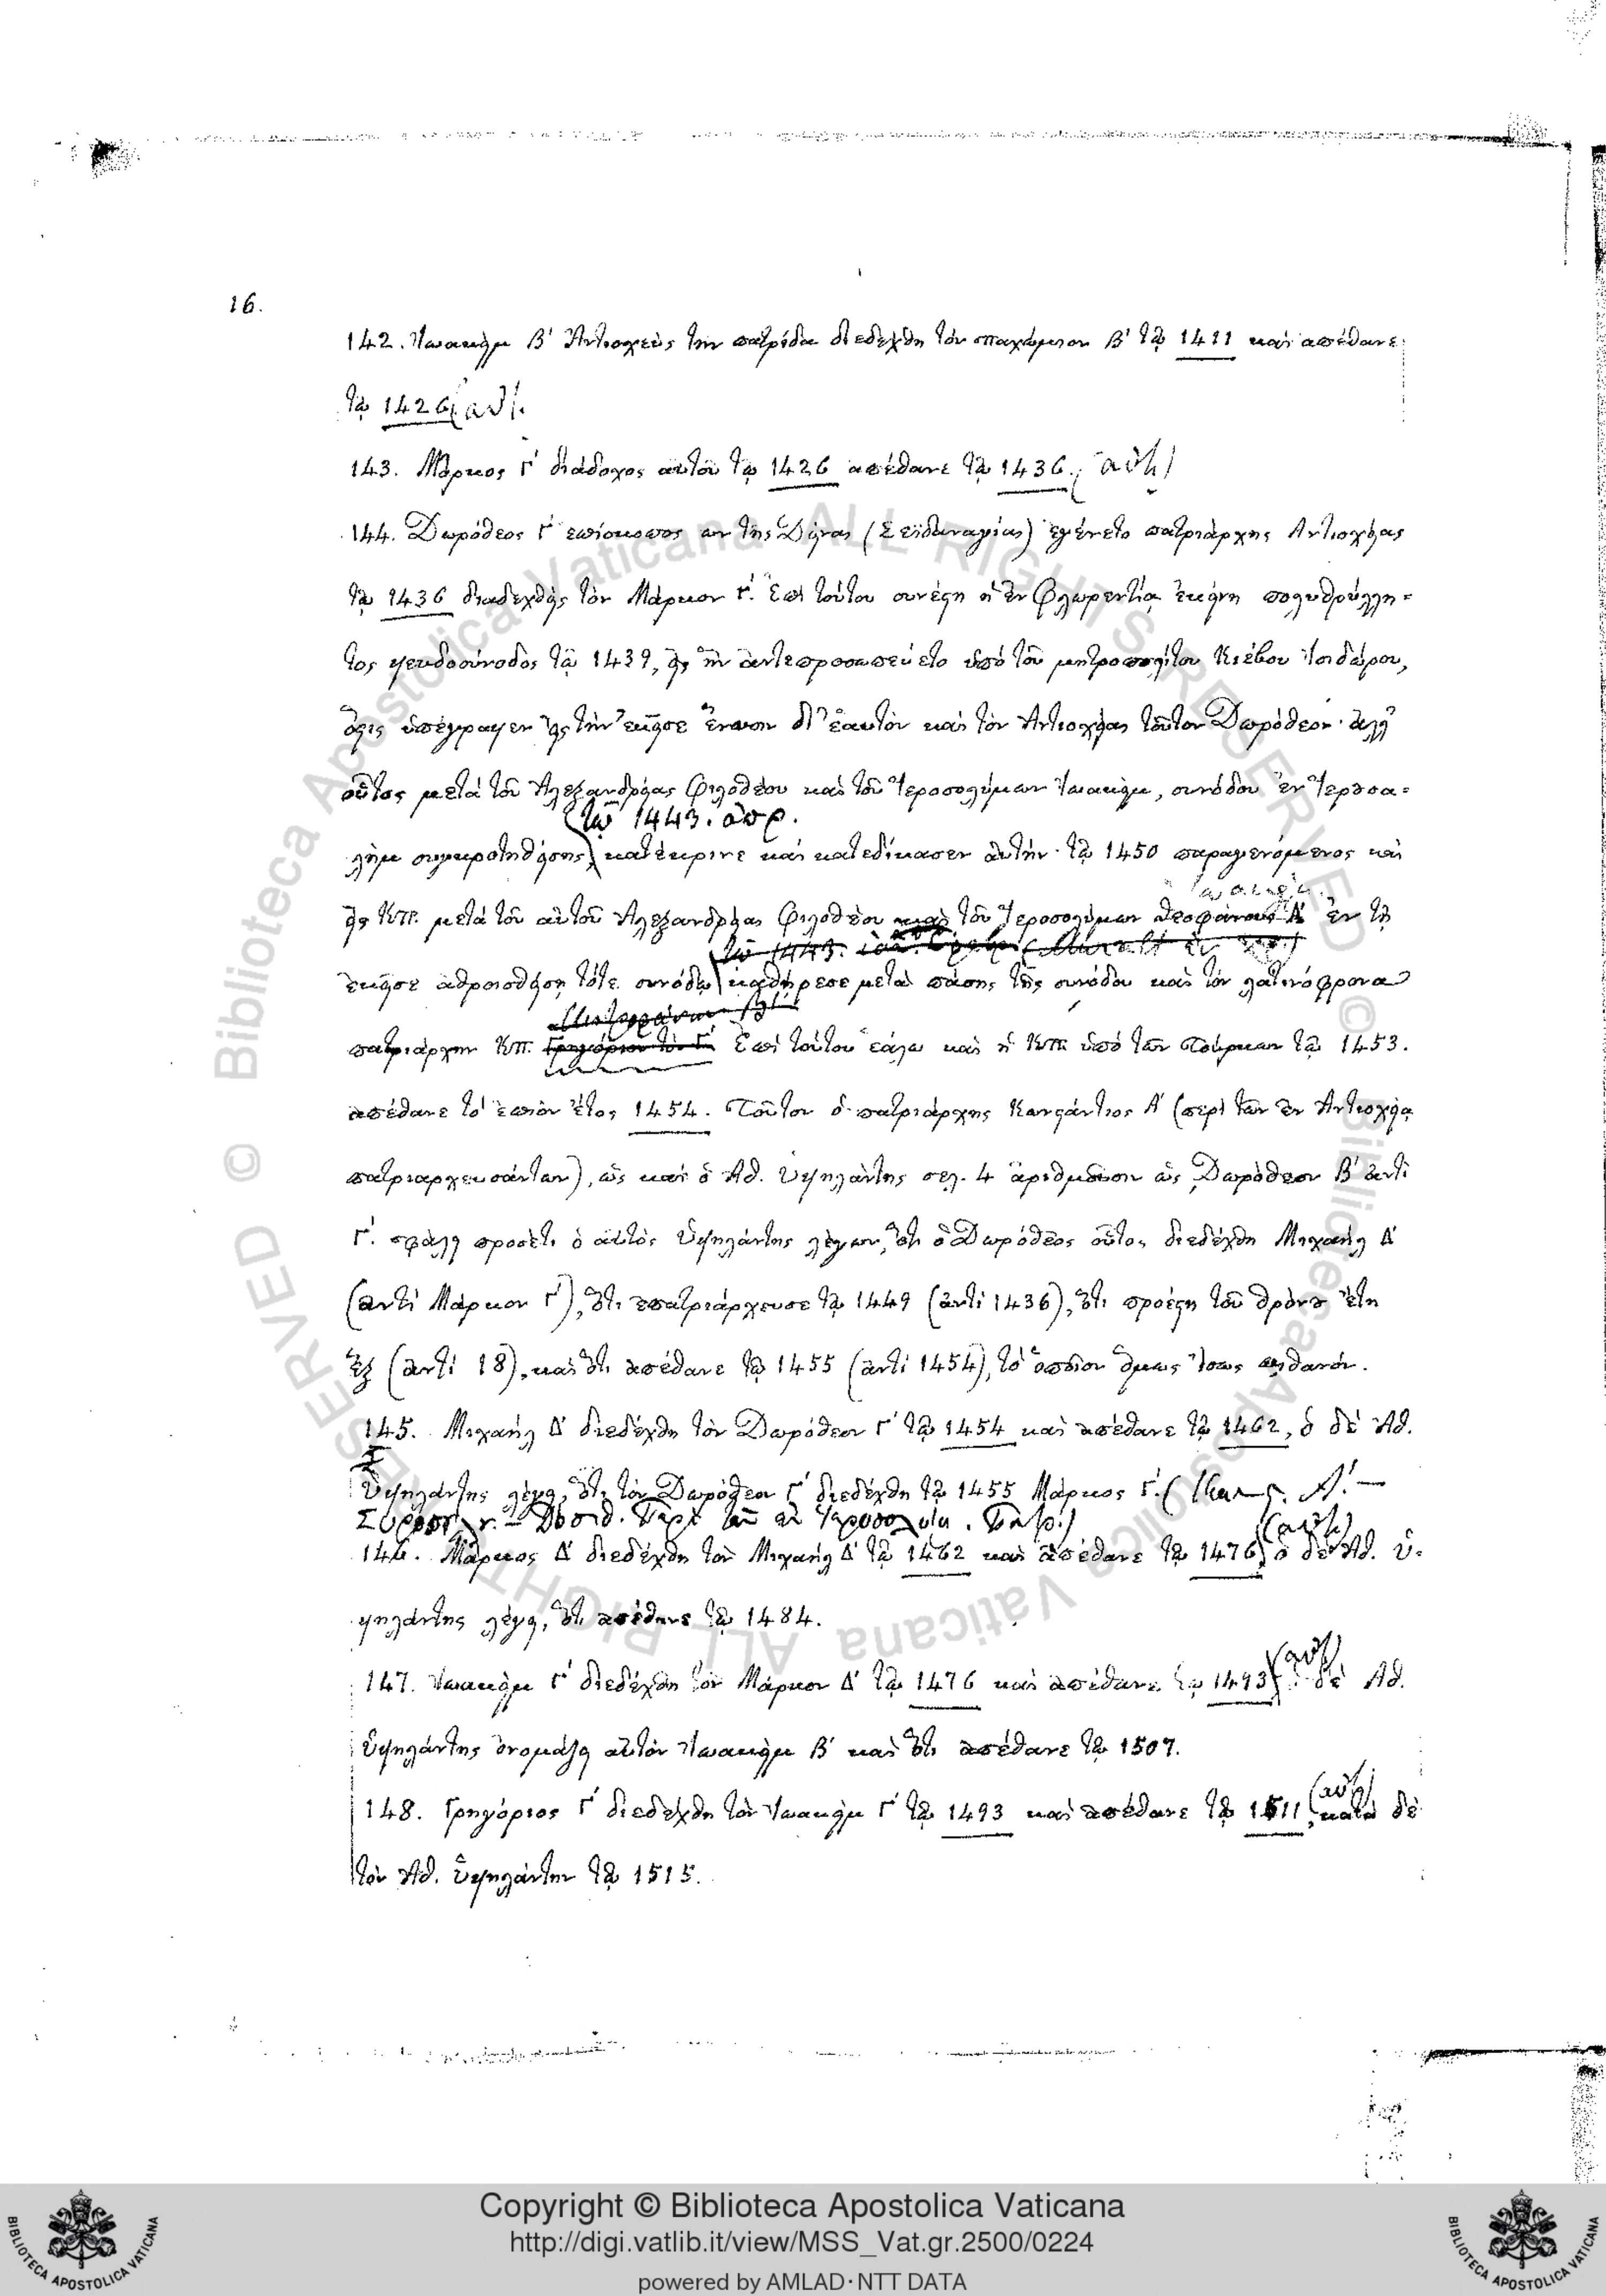 16.
142. Ἰωακεὶμ Β΄ Ἀντιοχεὺς τὴν πατρίδα διεδέχθη τὸν Παχώμιον Β΄ τῷ 1411 καὶ ἀπέθανε
τῷ 1426 (αὐτ).
143. Μάρκος Γ΄ διάδοχος αὐτοῦ τῷ 1426 ἀπέθανε τῷ 1436. (αὐτ)
144. Δωρόθεος Γ΄ ἐπίσκοπος ὢν τῆς (Σεϊδαναγίας) ἐγένετο πατριάρχης Ἀντιοχείας
τῷ 1436 διαδεχθεὶς τὸν Μάρκον Γ΄. Ἐπὶ τούτου συνέστη ἡ ἐν Φλωρεντίᾳ ἐκείνη πολυθρύλλη-
τος ψευδοσύνοδος τῷ 1439, εἰς ἣν ἀντεπροσωπεύετο ὑπὸ τοῦ μητροπολίτου Κιέβου Ἰσιδώρου,
ὅστις ὑπέγραψεν εἰς τὴν ἐκεῖσε ἕνωσιν δι' ἑαυτὸν καὶ τὸν Ἀντιοχείας τοῦτον Δωρόθεον· ἀλλ'
οὗτος μετὰ τοῦ Ἀλεξανδρείας Φιλοθέου καὶ τοῦ Ἱεροσολύμων Ἰωακεὶμ, συνόδου ἐν Ἱερουσα-
(τῷ 1443. ἀπρ.
λὴμ συγκροτηθείσης) κατέκρινε καὶ κατεδίκασεν αὐτήν· τῷ 1450 παραγενόμενος καὶ
εἰς ΚΠ. μετὰ τοῦ αὐτοῦ Ἀλεξανδρείας Φιλοθέου καὶ τοῦ Ἱεροσολύμων Θεοφάνους Δ΄ ἐν τῇ
τῷ 1443.
ἐκεῖσε ἀθροισθείσῃ τότε συνόδῳ καθῄρεσε μετὰ πάσης τῆς συνόδου καὶ τὸν λατινόφρονα
πατριάρχην ΚΠ. Γρηγόριον τὸν Γ΄ Ἐπὶ τούτου ἑάλω καὶ ἡ ΚΠ. ὑπὸ τῶν Τούρκων τῷ 1453.
ἀπέθανε τὸ ἐπιὸν ἔτος 1454. Τοῦτον ὁ πατριάρχης Κωνστάντιος Α΄ (περὶ τῶν ἐν Ἀντιοχείᾳ
πατριαρχευσάντων), ὡς καὶ ὁ Ἀθ. Ὑψηλάντης σελ. 4 ἀριθμοῦσιν ὡς Δωρόθεον Β΄ ἀντὶ
Γ΄. σφάλλει προσέτι ὁ αὐτὸς Ὑψηλάντης λέγων, ὅτι ὁ Δωρόθεος οὗτος διεδέχθη Μιχαὴλ Δ΄
(ἀντὶ Μάρκον Γ΄), ὅτι ἐπατριάρχευσε τῷ 1449 (ἀντὶ 1436), ὅτι προέστη τοῦ θρόνου ἔτη
ἓξ (ἀντὶ 18), καὶ ὅτι ἀπέθανε τῷ 1455 (ἀντὶ 1454), τὸ ὁποῖον ὅμως ἴσως πιθανόν.
145. Μιχαὴλ Δ΄ διεδέχθη τὸν Δωρόθεον Γ΄ τῷ 1454 καὶ ἀπέθανε τῷ 1462, ὁ δὲ Ἀθ.
Ὑψηλάντης λέγει, ὅτι τὸν Δωρόθεον Γ΄ διεδέχθη τῷ 1455 Μάρκος Γ΄. (Κωνστ. Α΄. —
146. Μάρκος Δ΄ διεδέχθη τὸν Μιχαὴλ Δ΄ τῷ 1462 καὶ ἀπέθανε τῷ 1476 (αὐτ) ὁ δὲ Ἀθ. Ὑ-
ψηλάντης λέγει, ὅτι ἀπέθανε τῷ 1484.
147. Ἰωακεὶμ Γ΄ διεδέχθη τὸν Μάρκον Δ΄ τῷ 1476 καὶ ἀπέθανε τῷ 1493 (αὐτ) ὁ δὲ Ἀθ.
Ὑψηλάντης ὀνομάζει αὐτὸν Ἰωακεὶμ Β΄ καὶ ὅτι ἀπέθανε τῷ 1507.
148. Γρηγόριος Γ΄ διεδέχθη τὸν Ἰωακεὶμ Γ΄ τῷ 1493 καὶ ἀπέθανε τῷ 1511 (αὐτ), κατὰ δὲ
τὸν Ἀθ. Ὑψηλάντην τῷ 1515.
Copyright © Biblioteca Apostolica Vaticana
http://digi.vatlib.it/view/MSS_Vat.gr.2500/0224
powered by AMLAD·NTT DATA